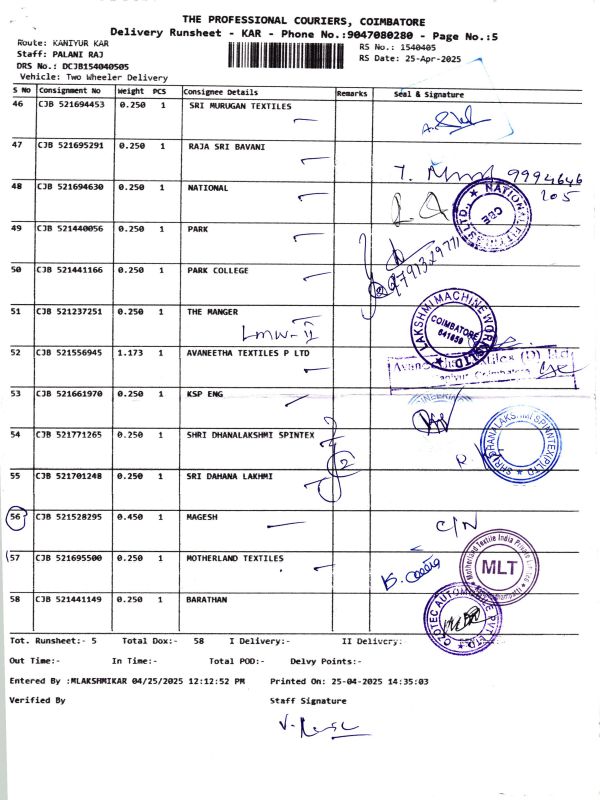 THE PROFESSIONAL COURIERS, COIMBATORE
Delivery Runsheet - KAR - Phone No.:9047080280 - Page No.:5
Route: KANIYUR KAR
RS No.: 1540405
Staff: PALANI RAJ
RS Date: 25-Apr-2025
DRS No.: DCJB154040505
Vehicle: Two Wheeler Delivery
S No Consignment No Weight PCS Consignee Details Remarks Seal & Signature
46 CJB 521694453 0.250 1 SRI MURUGAN TEXTILES
47 CJB 521695291 0.250 1 RAJA SRI BAVANI
9994646
205
48 CJB 521694630 0.250 1 NATIONAL
49 CJB 521440056 0.250 1 PARK
50 CJB 521441166 0.250 1 PARK COLLEGE
51 CJB 521237251 0.250 1 THE MANGER
LMW-II
LAKSHMI MACHINE WORKS LTD.
COIMBATORE
641659
52 CJB 521556945 1.173 1 AVANEETHA TEXTILES P LTD
53 CJB 521661970 0.250 1 KSP ENG
54 CJB 521771265 0.250 1 SHRI DHANALAKSHMI SPINTEX
2
SHRI DHANALAKSHMI SPINNTEX (P) LTD
55 CJB 521701248 0.250 1 SRI DAHANA LAKHMI
56 CJB 521528295 0.450 1 MAGESH
C/N
57 CJB 521695500 0.250 1 MOTHERLAND TEXTILES
Motherland Textile India Private Limited
MLT
58 CJB 521441149 0.250 1 BARATHAN
OZOTEC AUTOMOBILE PVT. LTD.
Tot. Runsheet:- 5 Total Dox:- 58 I Delivery:- II Delivery:
Out Time:- In Time:- Total POD:- Delvy Points:-
Entered By :MLAKSHMIKAR 04/25/2025 12:12:52 PM Printed On: 25-04-2025 14:35:03
Verified By Staff Signature